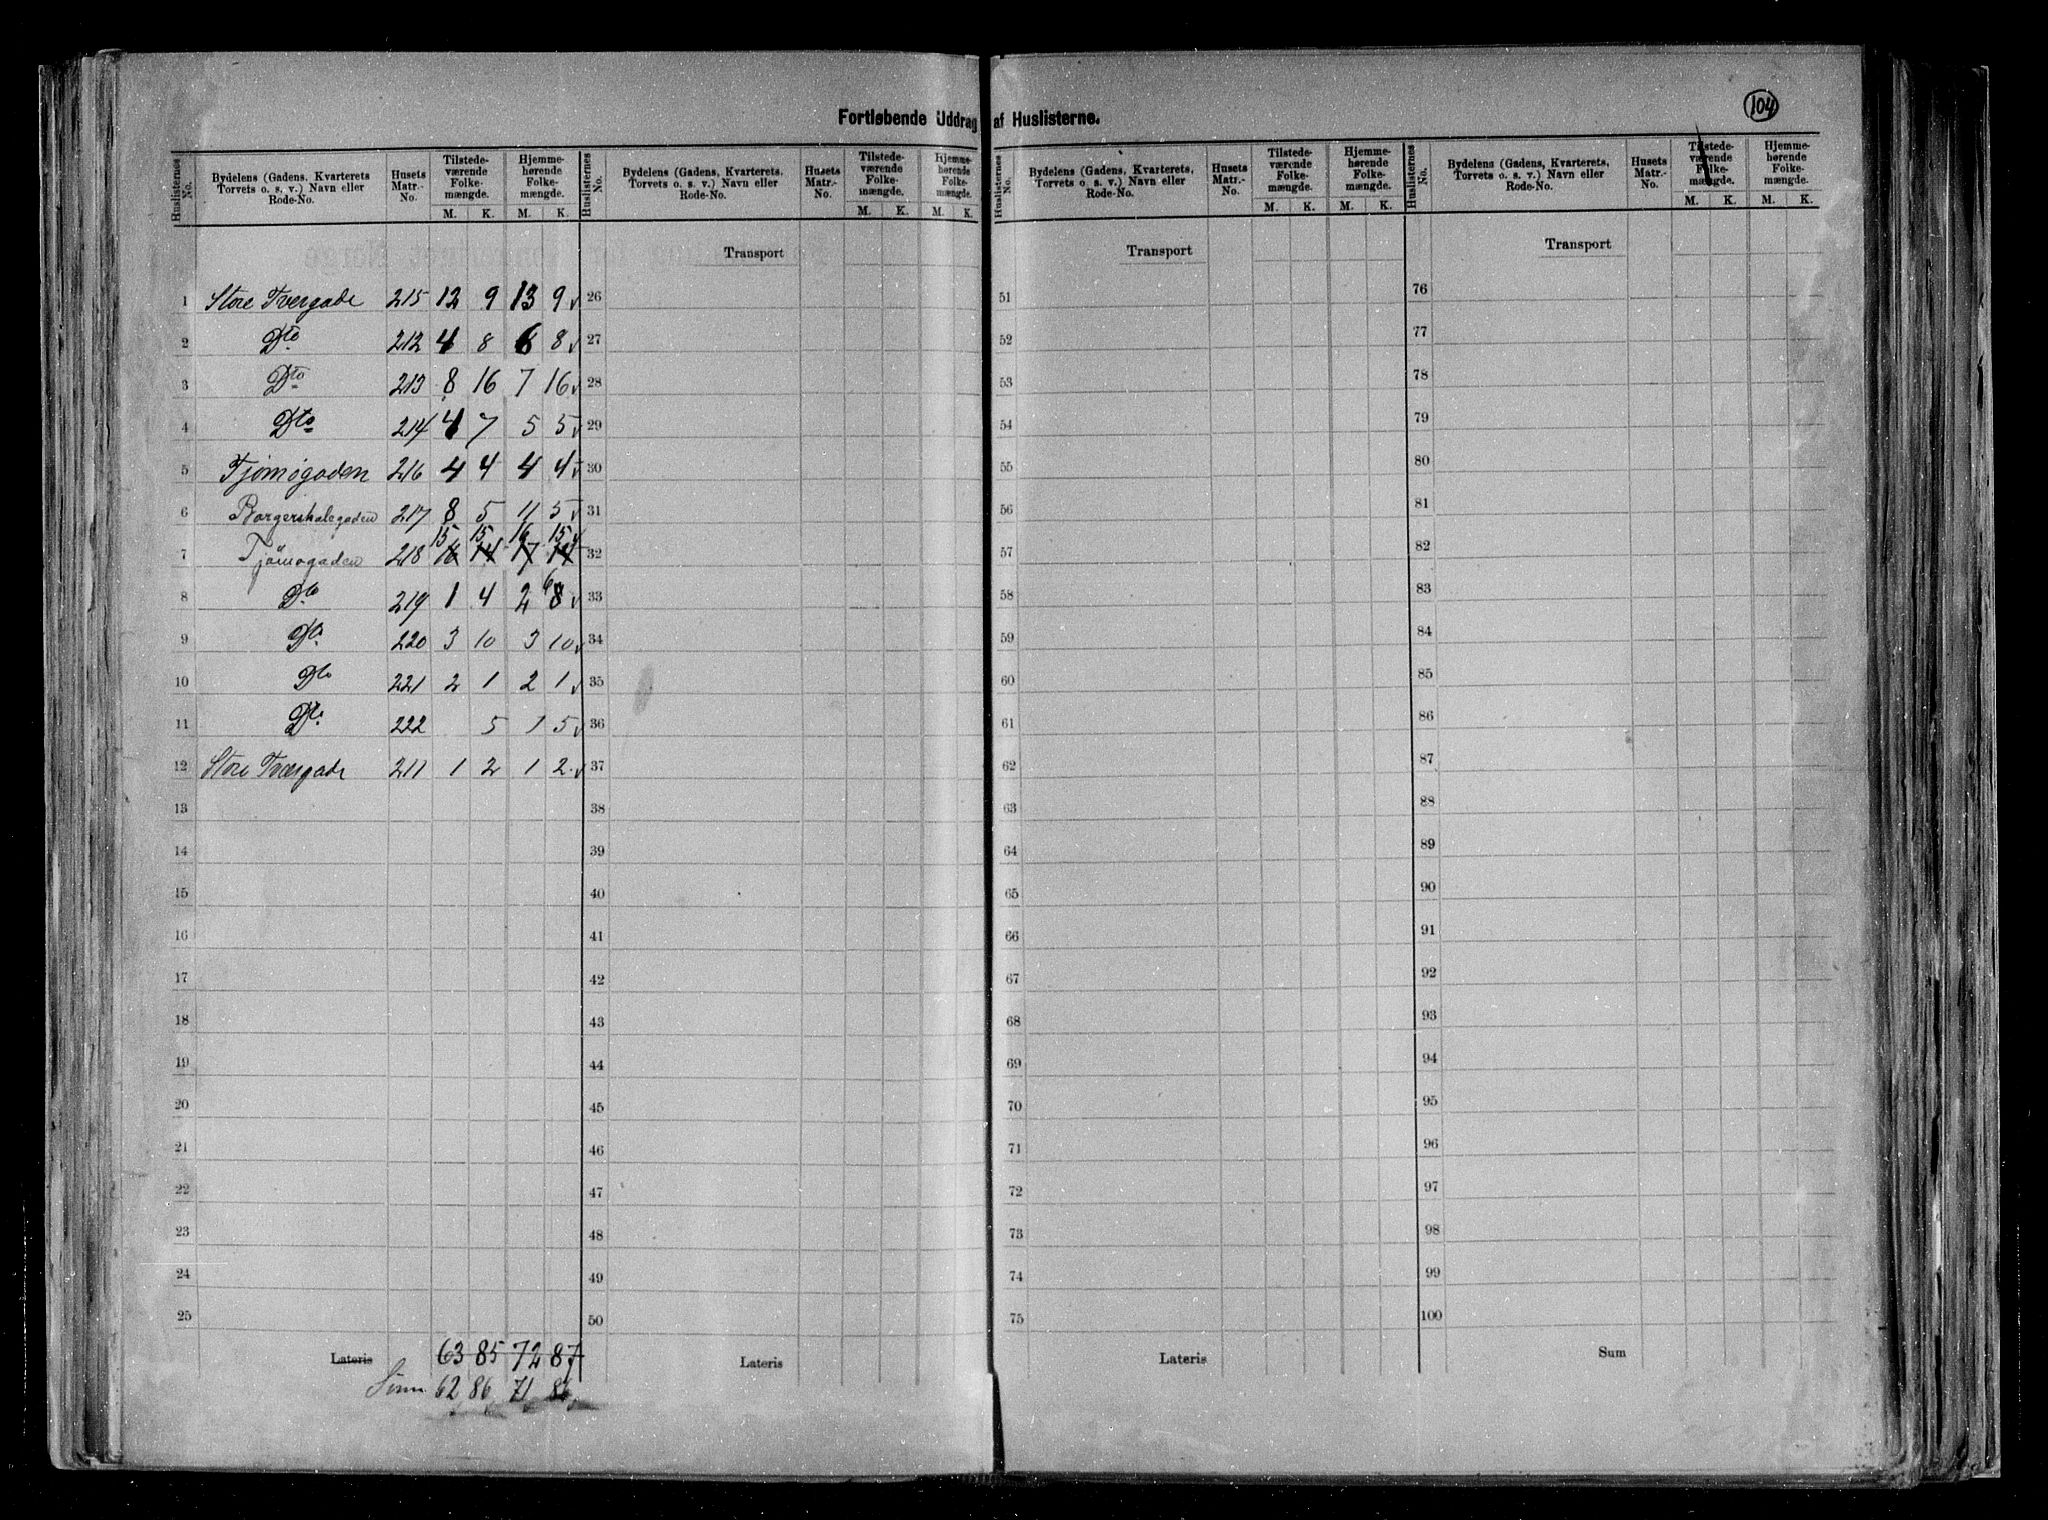 Fortløbende Uddrag af Huslisterne.
104
Huslisternes No. Bydelens (Gadens, Kvarterets, Torvets o. s. v.) Navn eller Rode-No. Husets Matr.-No. Tilstedeværende Folkemængde. M. K. Hjemmehørende Folkemængde. M. K.
Huslisternes No. Bydelens (Gadens, Kvarterets, Torvets o. s. v.) Navn eller Rode-No. Husets Matr.-No. Tilstedeværende Folkemængde. M. K. Hjemmehørende Folkemængde. M. K.
Huslisternes No. Bydelens (Gadens, Kvarterets, Torvets o. s. v.) Navn eller Rode-No. Husets Matr.-No. Tilstedeværende Folkemængde. M. K. Hjemmehørende Folkemængde. M. K.
Huslisternes No. Bydelens (Gadens, Kvarterets, Torvets o. s. v.) Navn eller Rode-No. Husets Matr.-No. Tilstedeværende Folkemængde. M. K. Hjemmehørende Folkemængde. M. K.
1 Store Tværgade 215 12 9 13 9
2 Dto 212 4 8 6 8
3 Dto 213 8 16 7 16
4 Dto 214 4 7 5 5
5 Tjømøgaden 216 4 4 4 4
6 Borgerskolegaden 217 8 5 11 5
15 15 16 15
7 Tjømøgaden 218 16 14 17 14
8 Dto 219 1 4 2 6 8
9 Dto 220 3 10 3 10
10 Dto 221 2 1 2 1
11 Dto 222 5 1 5
12 Store Tværgade 211 1 2 1 2
13
14
15
16
17
18
19
20
21
22
23
24
25
Lateris 63 85 72 87
Sum 62 86 71 86
Transport
26
27
28
29
30
31
32
33
34
35
36
37
38
39
40
41
42
43
44
45
46
47
48
49
50
Lateris
Transport
51
52
53
54
55
56
57
58
59
60
61
62
63
64
65
66
67
68
69
70
71
72
73
74
75
Lateris
Transport
76
77
78
79
80
81
82
83
84
85
86
87
88
89
90
91
92
93
94
95
96
97
98
99
100
Sum